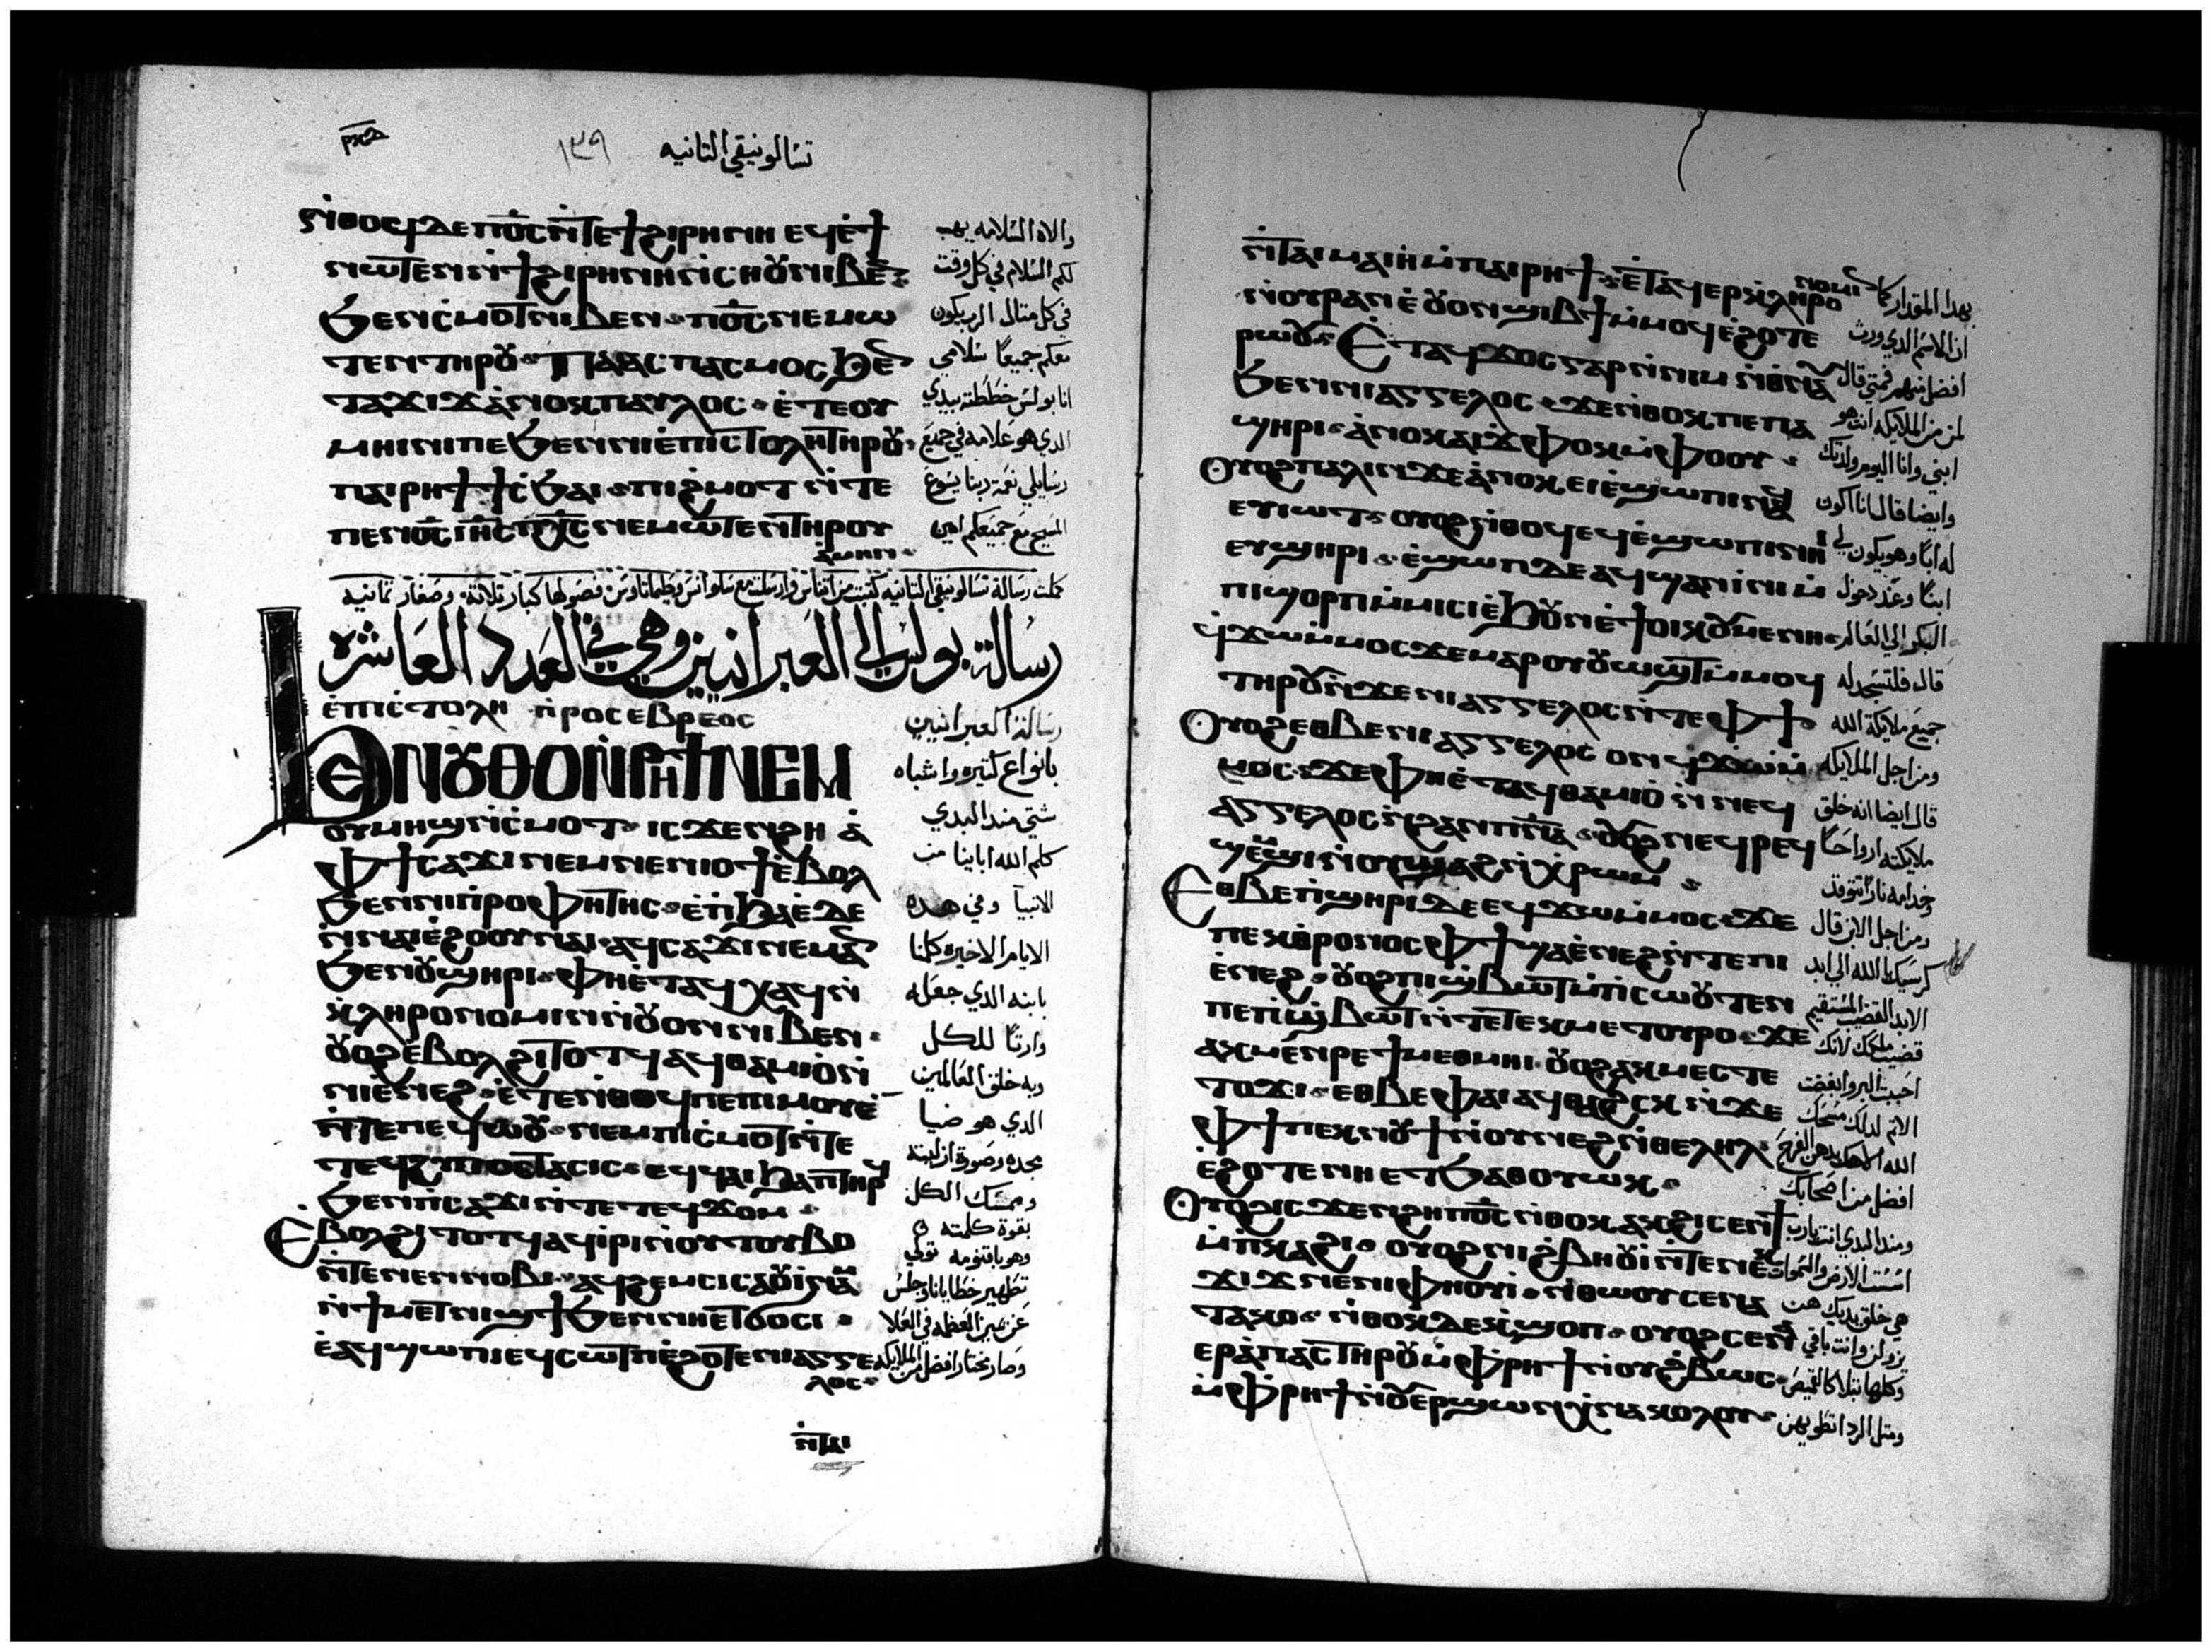 تسالونيقي الثانيه
١٣٩
ⲛ̀ⲑⲟϥ ⲇⲉ ⲡⲟ̅ⲥ̅ ⲛ̀ⲧⲉϯϩⲓⲣⲏⲛⲏ ⲉϥⲉ̀ϯ
ⲛⲱⲧⲉⲛ ⲛ̀ϯϩⲓⲣⲏⲛⲏ ⲛ̀ⲥⲏⲟⲩ ⲛⲓⲃⲉⲛ
ϧⲉⲛ ⲥ̀ⲙⲟⲧ ⲛⲓⲃⲉⲛ ⲡⲟ̅ⲥ̅ ⲛⲉⲙⲱ
ⲧⲉⲛ ⲧⲏⲣⲟⲩ ⲡⲁⲁⲥⲡⲁⲥⲙⲟⲥ ϧⲉⲛ
ⲧⲁϫⲓϫ ⲁⲛⲟⲕ ⲡⲁⲩⲗⲟⲥ ⲉ̀ⲧⲉⲟⲩ
ⲙⲏⲓⲛⲓ ⲡⲉ ϧⲉⲛ ⲛⲓⲉ̀ⲡⲓⲥⲧⲟⲗⲏ ⲧⲏⲣⲟⲩ
ⲡⲁⲓⲣⲏϯ ϯⲥ̀ϧⲁⲓ ⲡⲓϩⲙⲟⲧ ⲛ̀ⲧⲉ
ⲡⲉⲛⲟ̅ⲥ̅ ⲓⲏ̅ⲥ̅ ⲡⲭ̅ⲥ̅ ⲛⲉⲙⲱⲧⲉⲛ ⲧⲏⲣⲟⲩ
ⲁⲙⲏⲛ
والاه السلامه يهب
لكم السلام في كل وقت
في كل متال الرب يكون
معكم جميعا سلامي
انا بولس خططته بيدي
الدي هو علامه في جميع
رسايلي نعمة ربنا يسوع
المسيح مع جميعكم امين
رسالة بولس الي العبرانيين وهي في العدد العاشره
ⲉ̀ⲡⲓⲥⲧⲟⲗⲏ ⲡ̀ⲣⲟⲥ ⲉⲃⲣⲉⲟⲥ
ϧⲉⲛ ⲟⲩⲑⲟ ⲛ̀ⲣⲏϯ ⲛⲉⲙ
ⲟⲩⲙⲏϣ ⲛ̀ⲥⲙⲟⲧ ⲓⲥϫⲉⲛ ϩⲏ ⲁ̀
ⲫϯ ⲥⲁϫⲓ ⲛⲉⲙ ⲛⲉⲛⲓⲟϯ ⲉ̀ⲃⲟⲗ
ϧⲉⲛ ⲛⲓⲡⲣⲟⲫⲏⲧⲏⲥ ⲉⲡϧⲁⲉ̀ ⲇⲉ
ⲛ̀ⲛⲁⲓⲉ̀ϩⲟⲟⲩ ⲛⲁⲓ ⲁϥⲥⲁϫⲓ ⲛⲉⲙⲁⲛ
ϧⲉⲛ ⲟⲩϣⲏⲣⲓ ⲫⲏⲉ̀ⲧⲁϥⲭⲁϥ ⲛ̀
ⲕ̀ⲗⲏⲣⲟⲛⲟⲙⲓⲛ ⲛ̀ⲟⲩⲟⲛ ⲛⲓⲃⲉⲛ
ⲟⲩⲟϩ ⲉ̀ⲃⲟⲗ ϩⲓⲧⲟⲧϥ ⲁϥⲑⲁⲙⲓⲟ̀ ⲛ̀
ⲛⲓⲉ̀ⲛⲉϩ ⲉ̀ⲧⲉ ⲛ̀ⲑⲟϥ ⲡⲉ ⲡⲓⲙⲟⲩⲉ
ⲛ̀ⲧⲉ ⲡⲉϥⲱⲟⲩ ⲛⲉⲙ ⲡⲓⲥ̀ⲙⲟⲧ ⲛ̀ⲧⲉ
ⲧⲉϥϩⲩⲡⲟⲥⲧⲁⲥⲓⲥ ⲉϥϥⲁⲓ ϧⲁ ⲡⲧⲏⲣϥ
ϧⲉⲛ ⲡ̀ⲥⲁϫⲓ ⲛ̀ⲧⲉ ⲧⲉϥϫⲟⲙ
Ⲉ̀ⲃⲟⲗϩⲓⲧⲟⲧϥ ⲁϥⲓⲣⲓ ⲛ̀ⲟⲩⲧⲟⲩⲃⲟ
ⲛ̀ⲧⲉ ⲛⲉⲛⲛⲟⲃⲓ ⲁϥϩⲉⲙⲥⲓ ⲥⲁⲟⲩⲓⲛⲁⲙ
ⲛ̀ϯⲙⲉⲧⲛⲓϣϯ ϧⲉⲛ ⲛⲏⲉⲧϭⲟⲥⲓ
ⲉ̀ⲁϥϣⲱⲡⲓ ⲉϥⲥⲱⲧⲡ ⲉ̀ϩⲟⲧⲉ ⲛⲓⲁⲅⲅⲉ
ⲗⲟⲥ
رسالة العبرانيين
بانواع كتيره واشباه
شتي مند البدي
كلم الله اباينا من
الانبيا وفي هده
الايام الاخيره كلمنا
بابنه الدي جعله
وارثا للكل
وبه خلق العالمين
الدي هو ضيا
مجده وصورة ازليته
وممسك الكل
بقوة كلمته
وهو باقنومه تولي
تطهير خطايانا وجلس
عن يمين العظمه في العلا
وصار مختار افضل من الملايكه
ⲛ̀ⲧⲁⲓ
ⲛ̀ⲧⲁⲓⲙⲁⲓⲏ ⲙ̀ⲡⲁⲓⲣⲏϯ ⲉ̀ⲧⲁϥⲉⲣⲕⲗⲏⲣⲟ
ⲛⲟⲙⲓⲛ
ⲛ̀ⲟⲩⲣⲁⲛ ⲉ̀ⲟⲩⲟⲛ ϣⲓⲃϯ ⲙ̀ⲙⲟϥ ⲉ̀ϩⲟⲧⲉ
ⲣⲱⲟⲩ Ⲉⲧⲁϥϫⲟⲥ ⲅⲁⲣ ⲛ̀ⲛⲓⲙ ⲛ̀ⲑⲛⲁ
ϧⲉⲛ ⲛⲓⲁⲅⲅⲉⲗⲟⲥ ϫⲉ ⲛ̀ⲑⲟⲕ ⲡⲉ ⲡⲁ
ϣⲏⲣⲓ ⲁ̀ⲛⲟⲕ ⲁⲓϫⲫⲟⲕ ⲙ̀ⲫⲟⲟⲩ
Ⲟⲩⲟϩ ⲡⲁⲗⲓⲛ ϫⲉ ⲁ̀ⲛⲟⲕ ⲉⲓⲉ̀ϣⲱⲡⲓ ⲛⲁϥ
ⲉⲩⲓⲱⲧ ⲟⲩⲟϩ ⲛ̀ⲑⲟϥ ⲉϥⲉ̀ϣⲱⲡⲓ ⲛⲏⲓ
ⲉⲩϣⲏⲣⲓ ⲉ̀ϣⲱⲡ ⲇⲉ ⲁϥϣⲁⲛⲓⲛⲓ ⲙ̀
ⲡⲓϣⲟⲣⲡ ⲙ̀ⲙⲓⲥⲓ ⲉ̀ϧⲟⲩⲛ ⲉ̀ϯⲟⲓⲕⲟⲩⲙⲉⲛⲏ
ϥ̀ϫⲱ ⲙ̀ⲙⲟⲥ ϫⲉ ⲙⲁⲣⲟⲩⲟⲩⲱϣⲧ ⲙ̀ⲙⲟϥ
ⲧⲏⲣⲟⲩ ⲛ̀ϫⲉ ⲛⲓⲁⲅⲅⲉⲗⲟⲥ ⲛ̀ⲧⲉ ⲫϯ
Ⲟⲩⲟϩ ⲉⲑⲃⲉ ⲛⲓⲁⲅⲅⲉⲗⲟⲥ ⲟⲛ ϥ̀ϫⲱ ⲙ̀
ⲙⲟⲥ ϫⲉ ⲫⲏⲉ̀ⲧⲁϥⲑⲁⲙⲓⲟ̀ ⲛ̀ⲛⲉϥ
ⲁⲅⲅⲉⲗⲟⲥ ⲛ̀ϩⲁⲛⲡ̅ⲛ̅ⲁ̅ ⲟⲩⲟϩ ⲛⲉϥⲣⲉϥ
ϣⲉⲙϣⲓ ⲛ̀ⲟⲩϣⲁϩ ⲛ̀ⲭⲣⲱⲙ
Ⲉⲑⲃⲉ ⲡ̀ϣⲏⲣⲓ ⲇⲉ ⲉϥϫⲱ ⲙ̀ⲙⲟⲥ ϫⲉ
ⲡⲉⲕⲑⲣⲟⲛⲟⲥ ⲫϯ ϣⲁ ⲉ̀ⲛⲉϩ ⲛ̀ⲧⲉ ⲡⲓ
ⲉ̀ⲛⲉϩ ⲟⲩⲟϩ ⲡⲓϣ̀ⲃⲱⲧ ⲙ̀ⲡⲥⲱⲟⲩⲧⲉⲛ
ⲡⲉ ⲡ̀ϣ̀ⲃⲱⲧ ⲛ̀ⲧⲉ ⲧⲉⲕⲙⲉⲧⲟⲩⲣⲟ ϫⲉ
ⲁⲕⲙⲉⲛⲣⲉ ϯⲙⲉⲑⲙⲏⲓ ⲟⲩⲟϩ ⲁⲕⲙⲉⲥⲧⲉ
ⲡϭⲓ ⲛ̀ϫⲟⲛⲥ ⲉⲑⲃⲉ ⲫⲁⲓ ⲁϥⲑⲁϩⲥⲕ ⲛ̀ϫⲉ
ⲫϯ ⲡⲉⲕⲛⲟⲩϯ ⲛ̀ⲟⲩⲛⲉϩ ⲛ̀ⲑⲉⲗⲏⲗ
ⲉ̀ϩⲟⲧⲉ ⲛⲏⲉⲧϧⲁⲑⲟⲩⲱⲕ
Ⲟⲩⲟϩ ⲓⲥϫⲉⲛ ϩⲏ ⲡⲟ̅ⲥ̅ ⲛ̀ⲑⲟⲕ ⲁⲕϩⲓⲥⲉⲛϯ
ⲙ̀ⲡⲕⲁϩⲓ ⲟⲩⲟϩ ⲛⲓϩ̀ⲃⲏⲟⲩⲓ ⲛ̀ⲧⲉ ⲛⲉⲕ
ϫⲓϫ ⲛⲉ ⲛⲓⲫⲏⲟⲩⲓ ⲛ̀ⲑⲱⲟⲩ ⲥⲉⲛⲁ
ⲧⲁⲕⲟ ⲛ̀ⲑⲟⲕ ⲇⲉ ⲕ̀ϣⲟⲡ ⲟⲩⲟϩ ⲥⲉⲛⲁ
ⲉⲣⲁ̀ⲡⲁⲥ ⲧⲏⲣⲟⲩ ⲙ̀ⲫⲣⲏϯ ⲛ̀ⲟⲩϩ̀ⲃⲱⲥ
ⲙ̀ⲫⲣⲏϯ ⲛ̀ⲟⲩⲉⲣϣⲱⲛ ⲭ̀ⲛⲁⲕⲟⲗⲟⲩ
بهدا المقدار كما
ان الاسم الدي ورث
افضل منهم فمتي قال
لمن من الملايكه انت هو
ابني وانا اليوم ولدتك
وايضا قال انا اكون
له ابا وهو يكون لي
ابنا وعند دخول
البكر الي العالم
قال فلتسجد له
جميع ملايكة الله
ومن اجل الملايكه
قال ايضا انه خلق
ملايكته ارواحا
وخدامه نار تتوقد
ومن اجل الابن قال
كرسيك يا الله الي ابد
الابد القضيب المستقيم
قضيب ملكك لانك
احببت البر وابغضت
الاتم لدلك مسحك
الله الاهك بدهن الفرح
افضل من اصحابك
ومند البدي انت يا رب
اسست الارض والسموات
هي خلق يديك هن
يزولن وانت باقي
وكلها تبلا كالقميص
ومتل الردا تطويهن